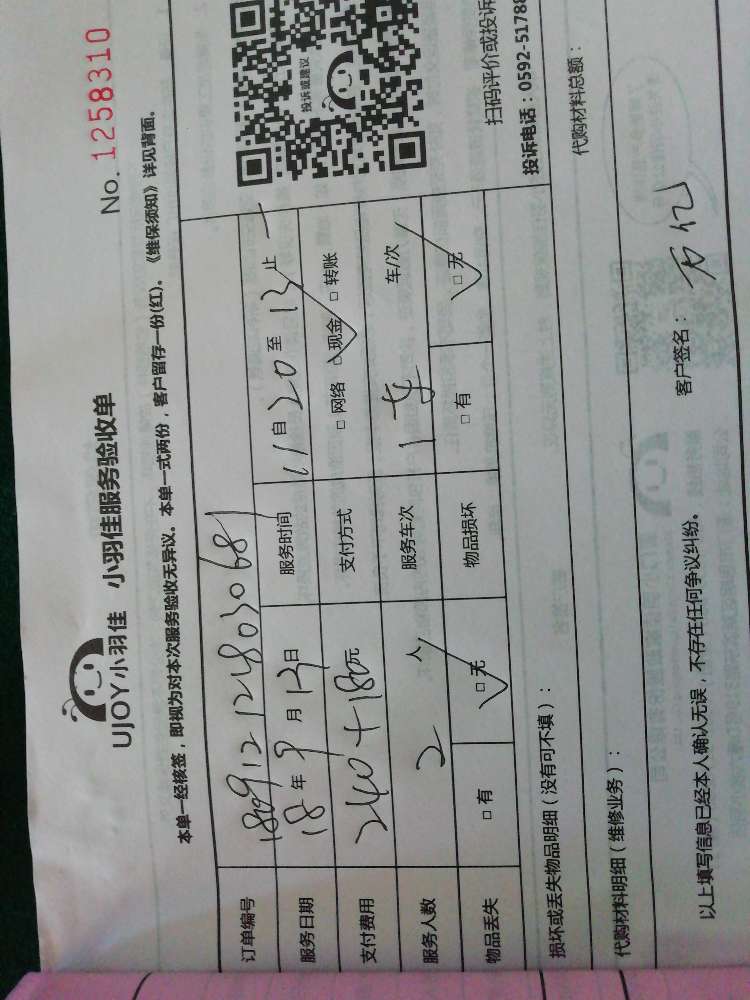 UJOY小羽佳 小羽佳服务验收单
No. 1258310
本单一经核签，即视为对本次服务验收无异议。本单一式两份，客户留存一份(红)。《维保须知》详见背面。
订单编号
服务日期 18 年 9 月 13 日 服务时间 11 自 20 至 13 止
支付费用 240+180元 支付方式 □ 网络 □ 现金 □ 转账
服务人数 2 人 服务车次 1车 车/次
物品丢失 □ 有 □ 无 物品损坏 □ 有 □ 无
投诉或建议
扫码评价或投诉
投诉电话：0592-51788
损坏或丢失物品明细（没有可不填）：
代购材料明细（维修业务）： 代购材料总额：
以上填写信息已经本人确认无误，不存在任何争议纠纷。 客户签名：